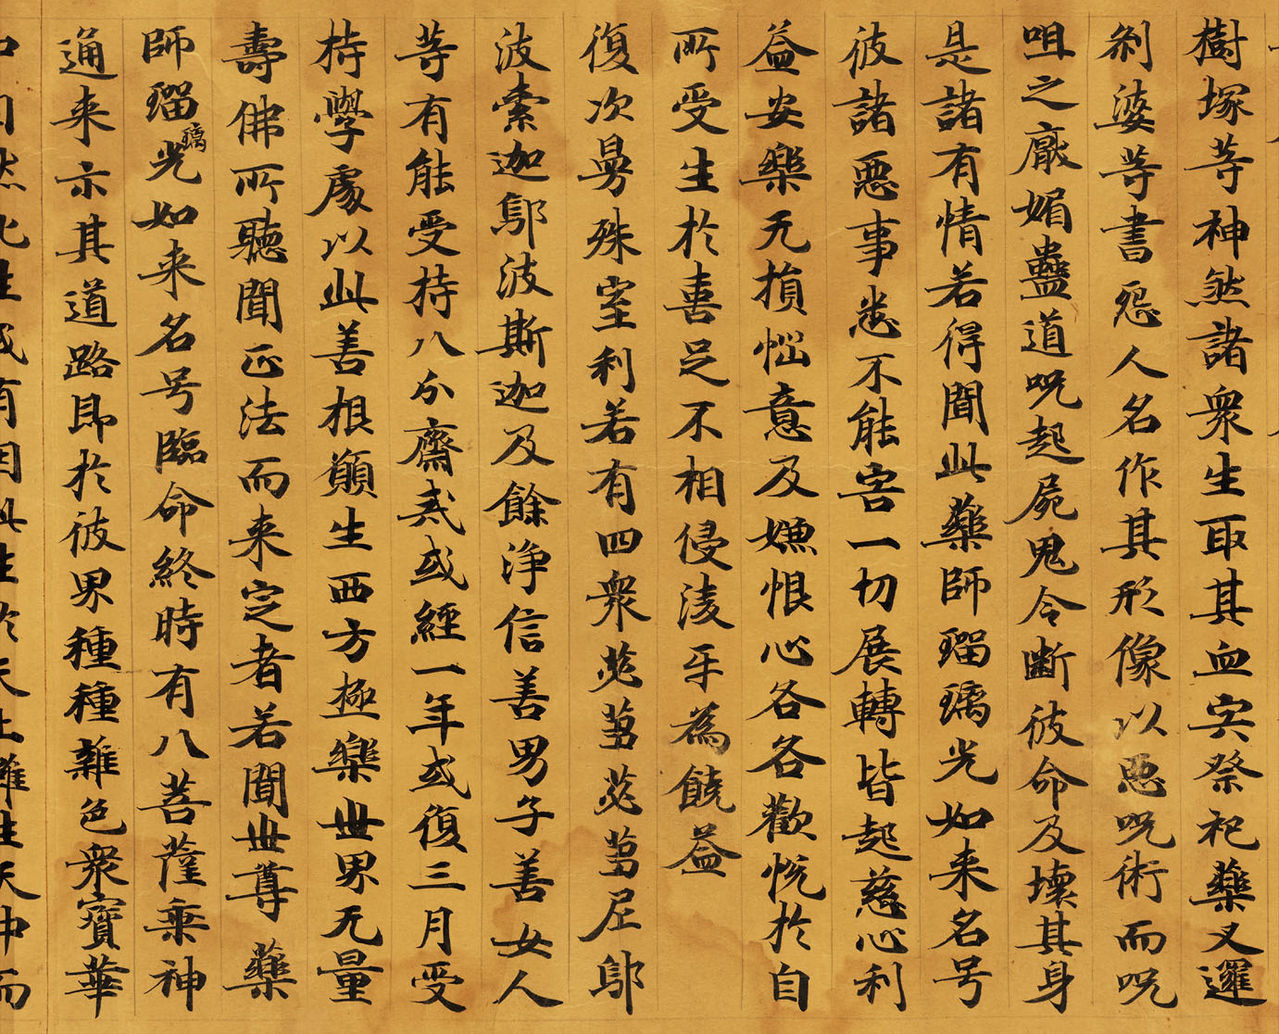 樹塚等神煞諸衆生取其血宍祭祀藥叉邏
刹婆等書怨人名作其形像以惡呪術而呪
咀之厭媚蠱道呪起屍鬼令斷彼命及壞其身
是諸有情若得聞此藥師瑠璃光如来名号
彼諸惡事悉不能害一切展轉皆起慈心利
益安樂无損惱意及嫌恨心各各歡悅於自
所受生於喜足不相侵淩乎為饒益
復次曼殊室利若有四衆苾蒭苾蒭尼鄔
波索迦鄔波斯迦及餘淨信善男子善女人
等有能受持八分齋戒或經一年或復三月受
持學處以此善根願生西方極樂世界无量
壽佛所聽聞正法而来定者若聞世尊藥
師瑠璃光如来名号臨命終時有八菩薩乘神
通来示其道路即於彼界種種雜色衆寶華